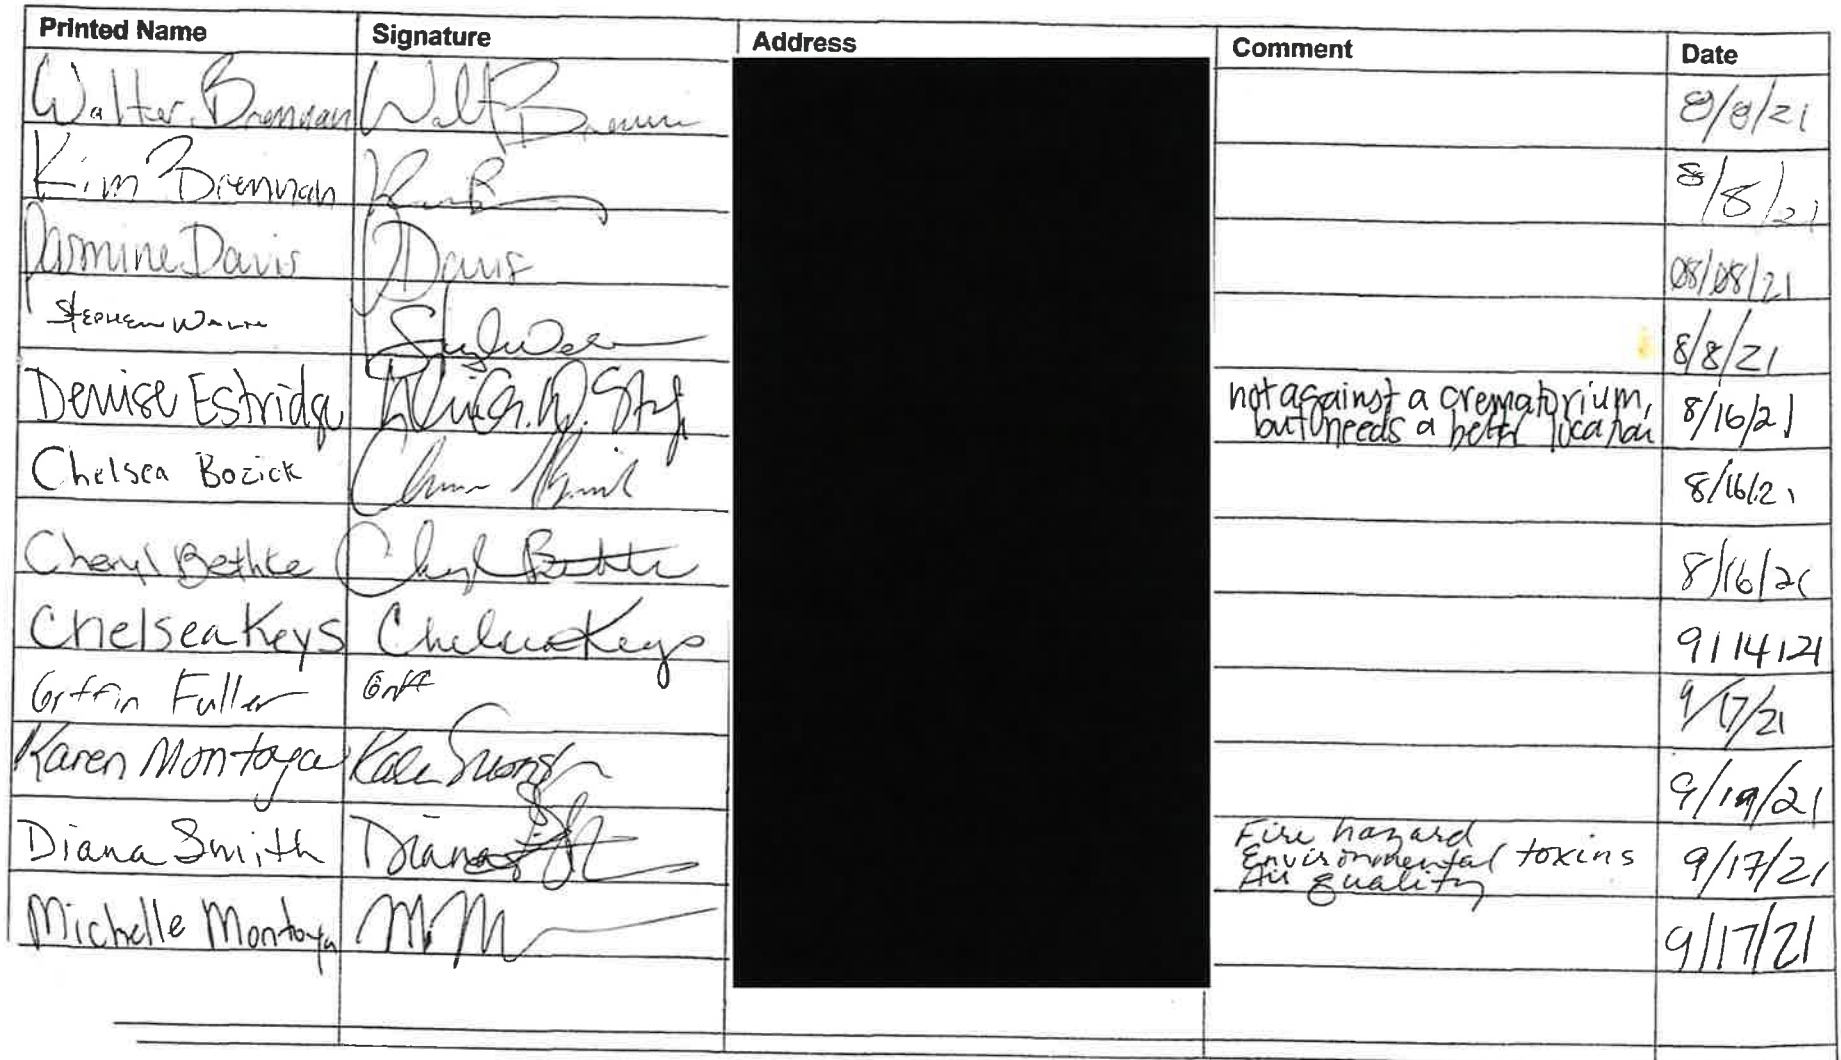 Printed Name Signature Address Comment Date
Walter Brennan Walt B 8/8/21
Kim Brennan 8/8/21
Jasmine Davis JDavis 08/08/21
Stephen 8/8/21
Denise Estridge not against a crematorium,
but needs a better location 8/16/21
Chelsea Bozick 8/16/21
Cheryl Bethke Cheryl Bethke 8/16/21
Chelsea Keys Chelsea Keys 9/14/21
Griffin Fuller Griff 9/17/21
Karen Montoya 9/19/21
Diana Smith Diana Fire hazard
Environmental toxins
Air quality 9/17/21
Michelle Montoya MM 9/17/21